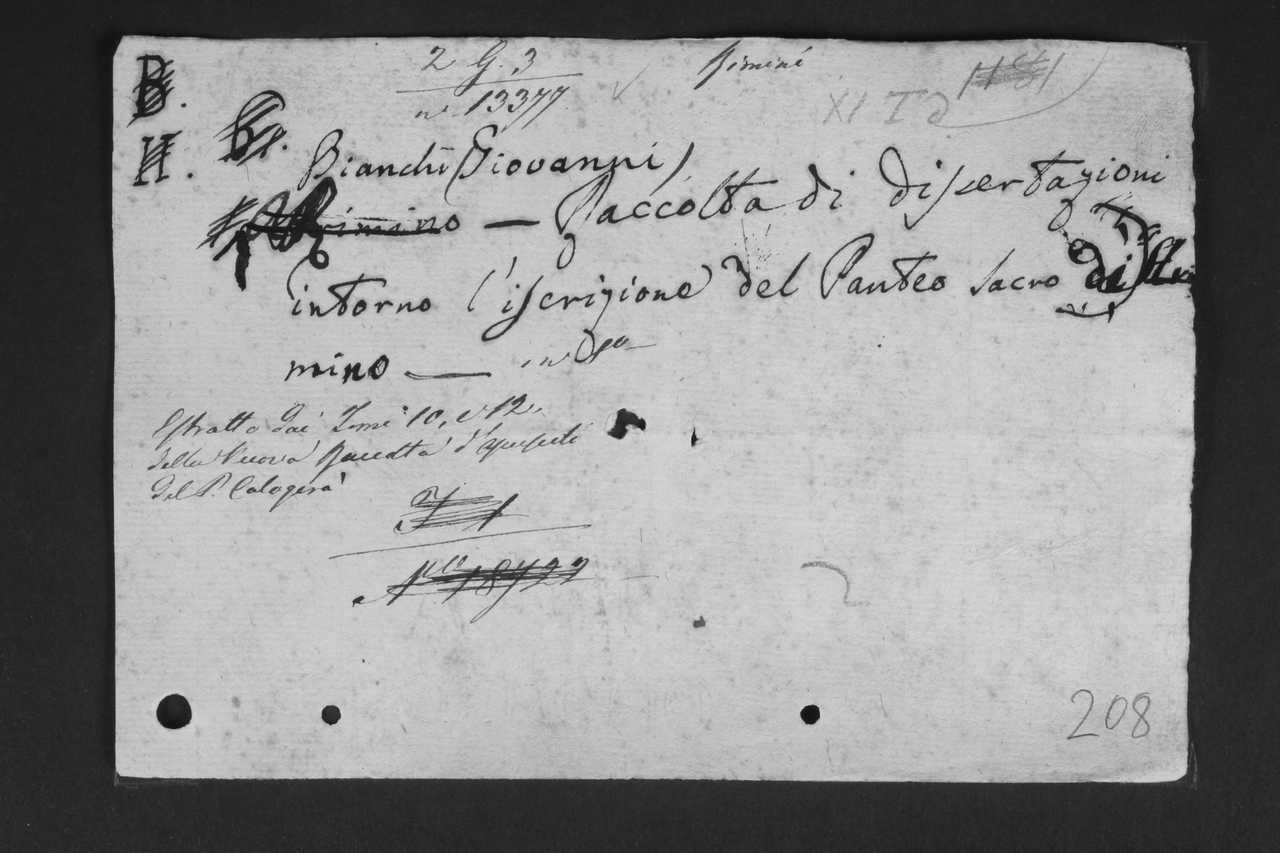 B.
2 G. 3
Rimini
n.º 13377
XI I d
H.
Bianchi (Giovanni)
Rimino — Raccolta di dissertazioni
intorno l'iscrizione del Panteo sacro di
mino — in 8º
Estratto dai Tomi 10, e 12.
della Nuova Raccolta d'opuscoli
del P. Calogerà
N.º 18722
208